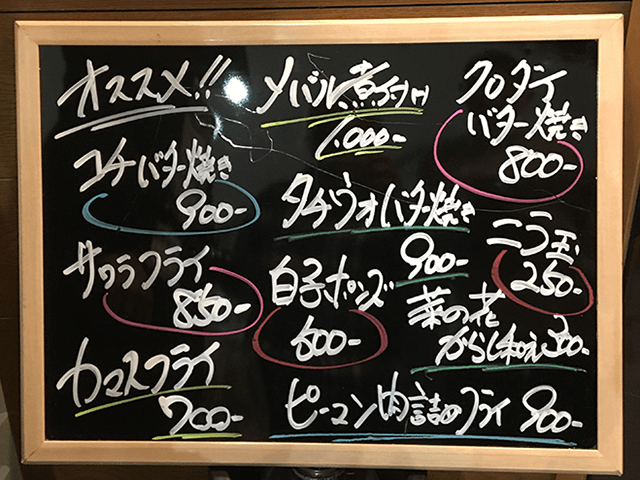 オススメ!!
コチバター焼き
900-
サワラフライ
850-
カマスフライ
700-
メバル煮つけ
1.000-
タチウオバター焼き
900-
白子ポンズ
600-
クロダイ
バター焼き
800-
ニラ玉
250-
菜の花
からし和え300-
ピーマン肉詰めフライ 900-